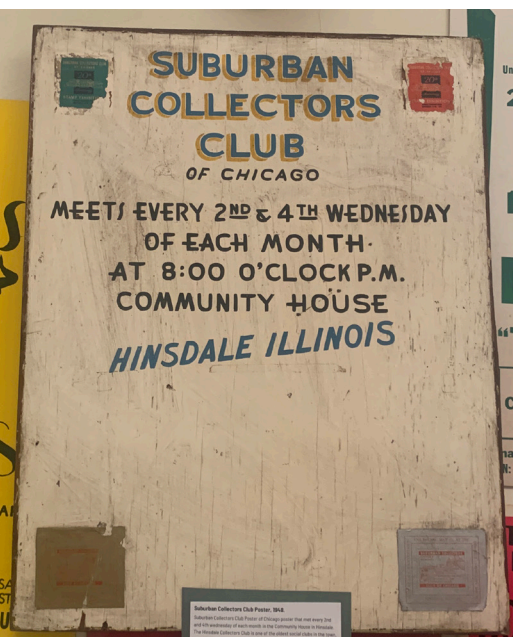 SUBURBAN
COLLECTORS
CLUB
OF CHICAGO
MEETS EVERY 2ND & 4TH WEDNESDAY
OF EACH MONTH·
AT 8:00 O'CLOCK P.M.
COMMUNITY HOUSE
HINSDALE ILLINOIS
Suburban Collectors Club Poster, 1948
Suburban Collectors Club Poster of Chicago poster that met every 2nd
and 4th wednesday of each month in the Community House in Hinsdale.
The Hinsdale Collectors Club is one of the oldest social clubs in the town.